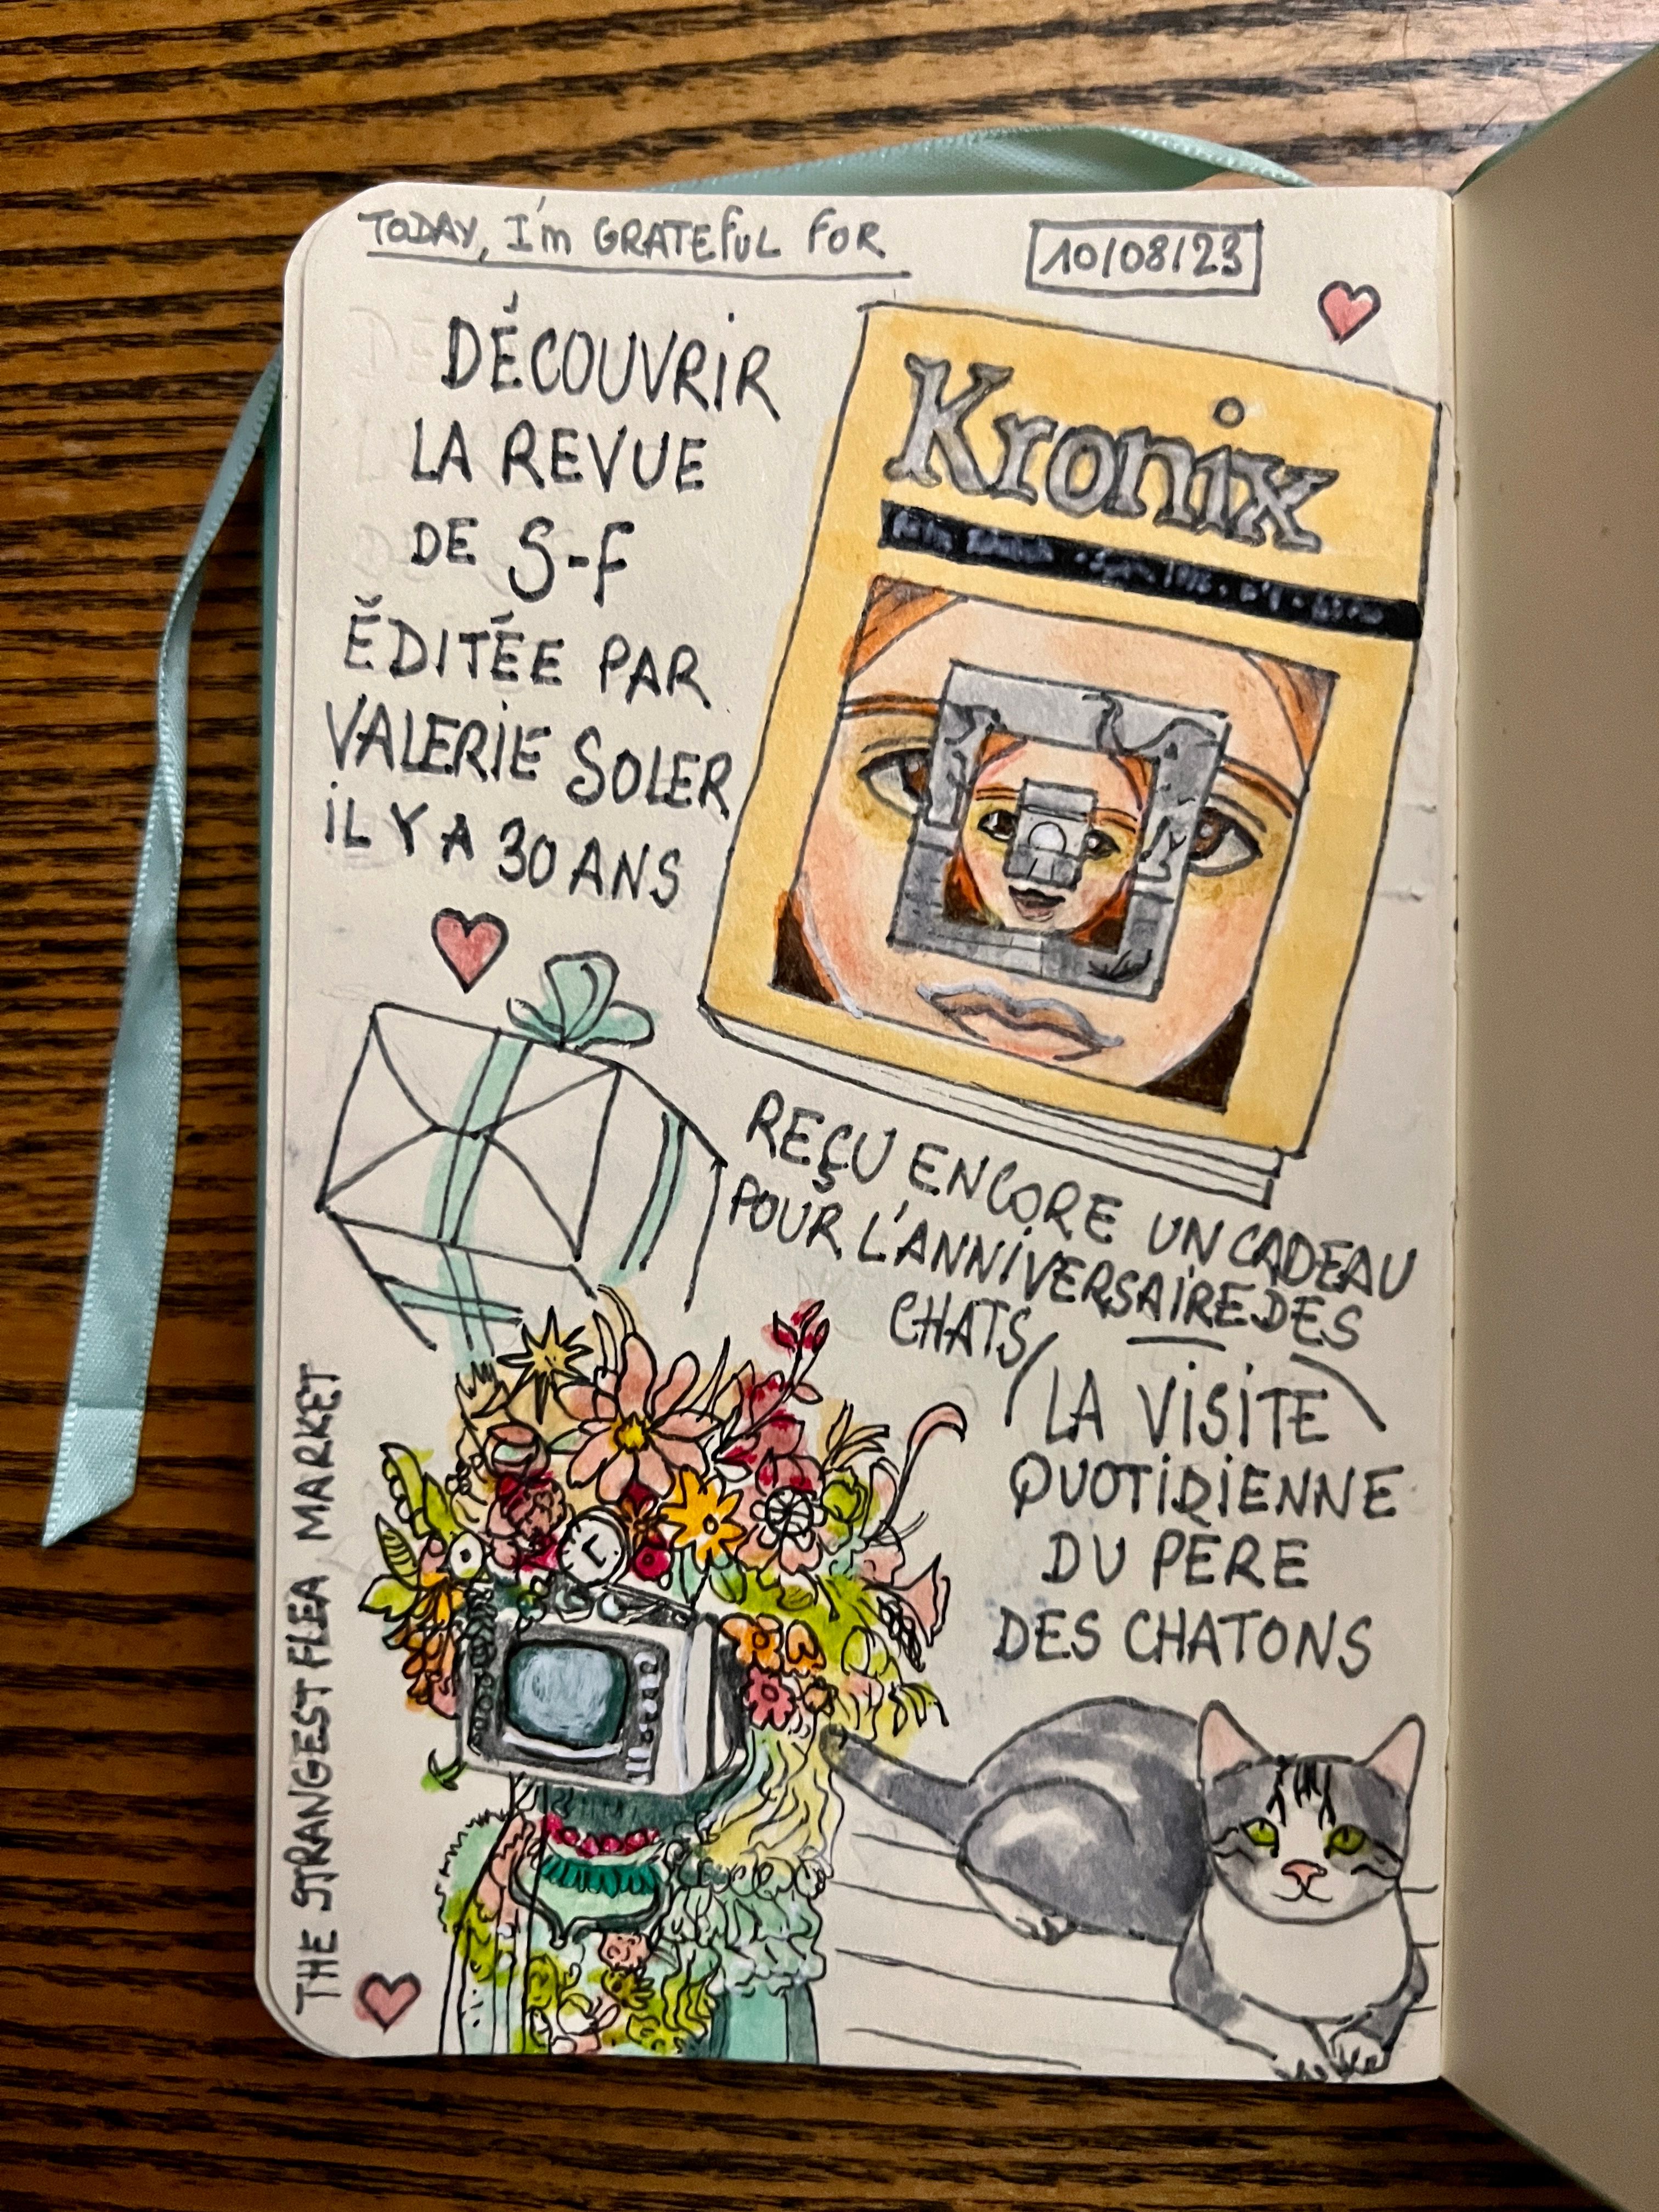 TODAY, I'm GRATEFUL FOR
10/08/23
DÉCOUVRIR
LA REVUE
DE S-F
ÉDITÉE PAR
VALERIE SOLER
IL Y A 30 ANS
Kronix
REÇU ENCORE UN CADEAU
POUR L'ANNIVERSAIRE DES
CHATS
LA VISITE
QUOTIDIENNE
DU PÈRE
DES CHATONS
THE STRANGEST FLEA MARKET